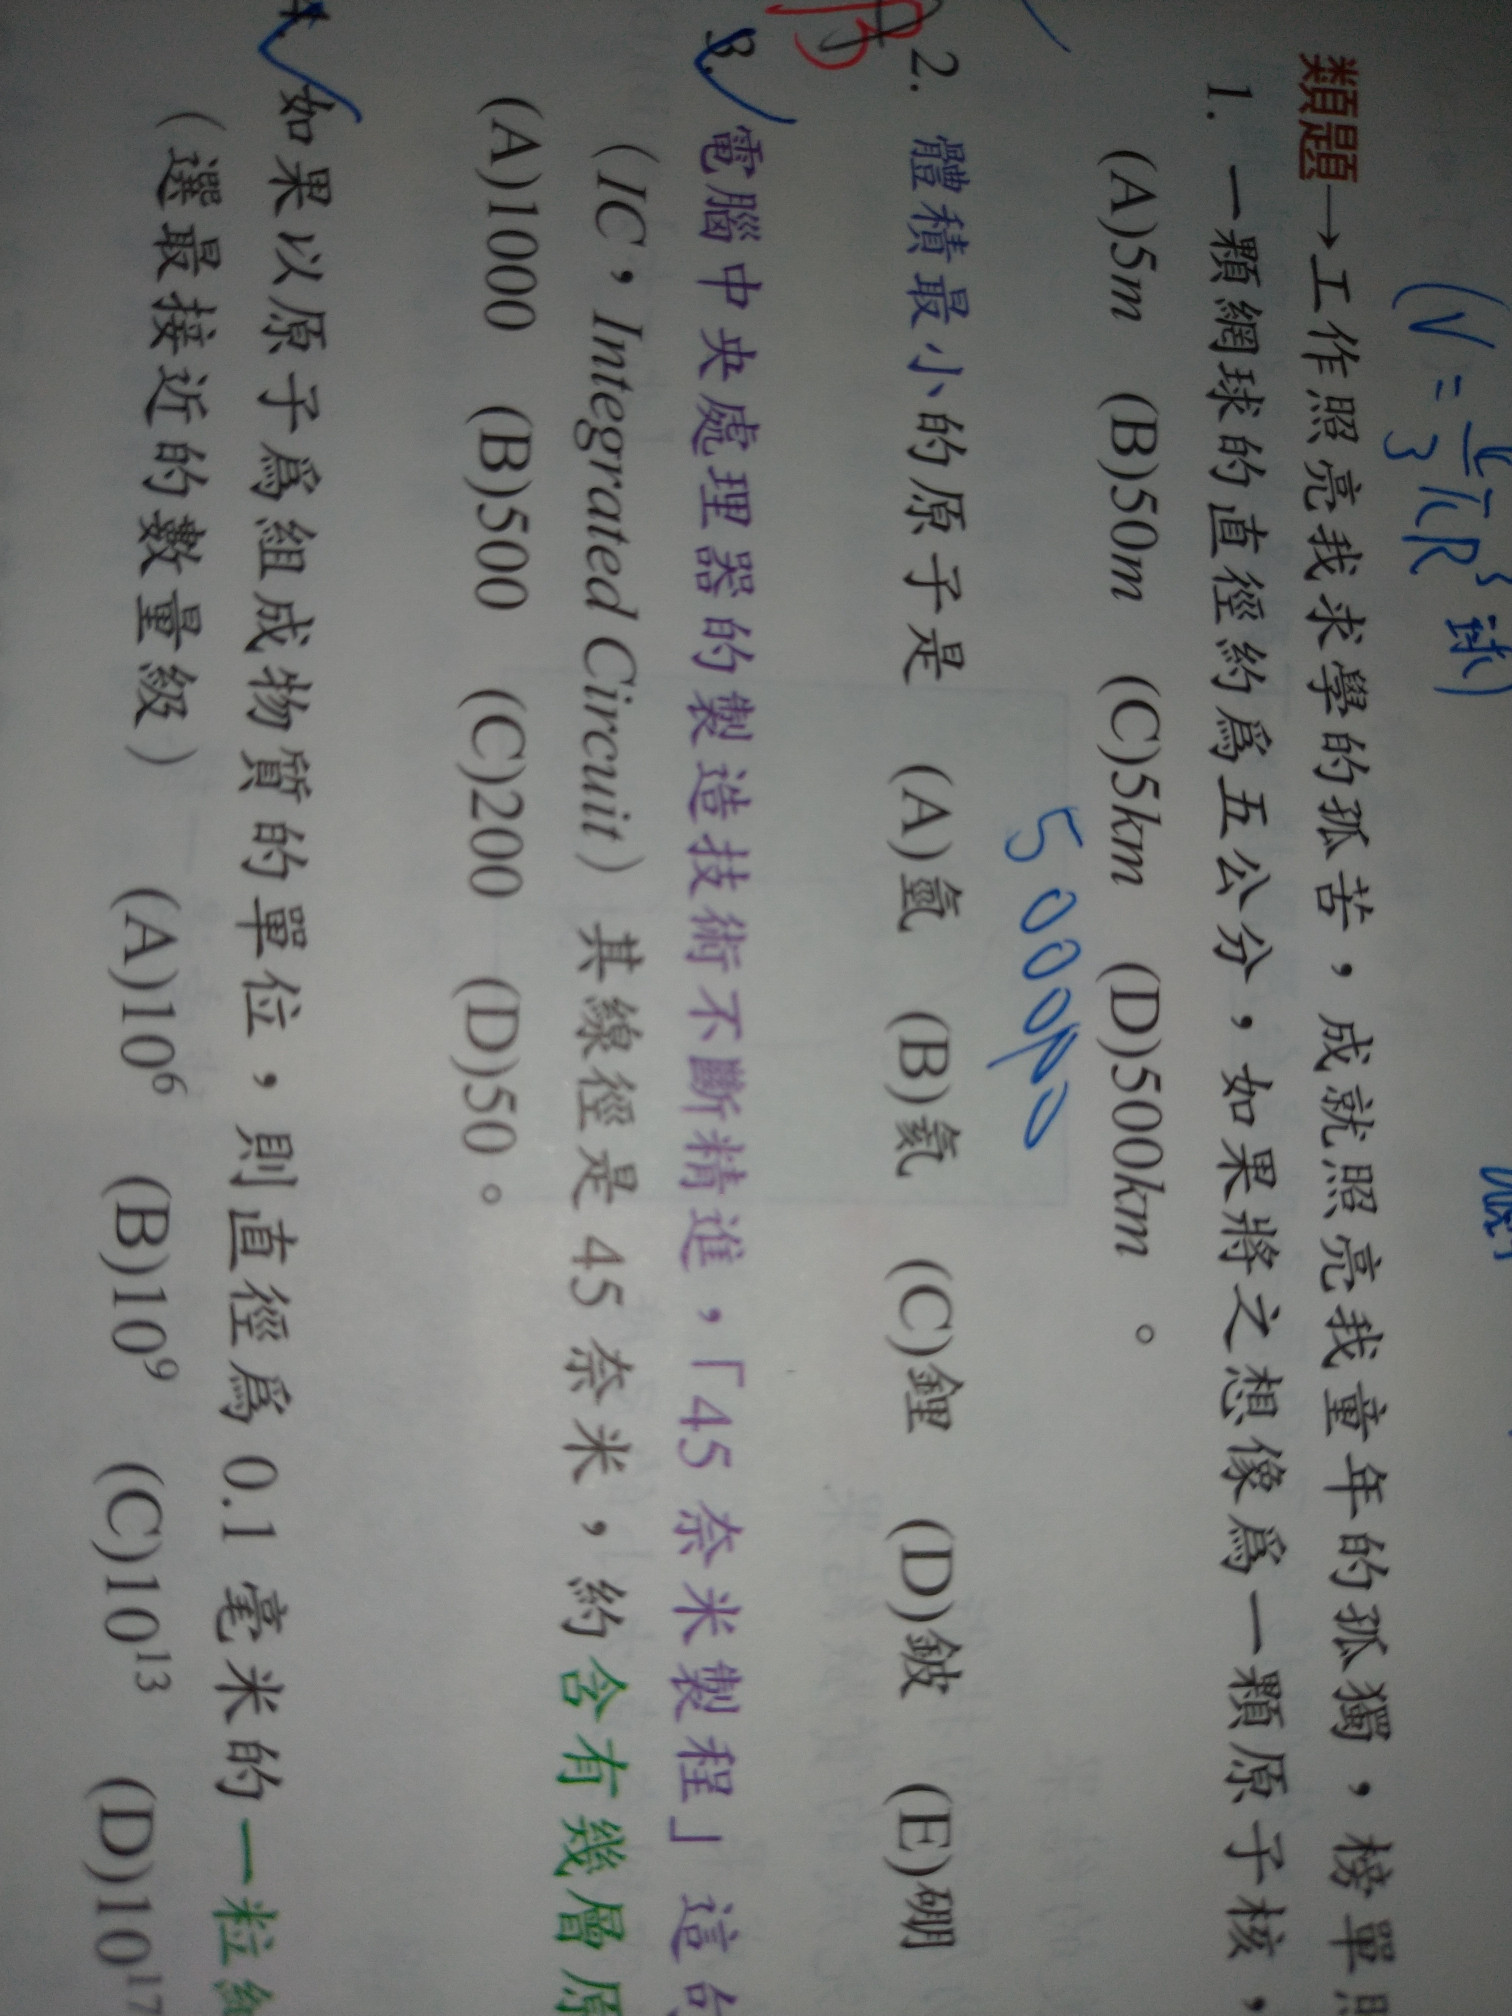 (V = 4/3 πR³ 球)
類題→工作照亮我求學的孤苦，成就照亮我童年的孤獨，榜單
1. 一顆網球的直徑約為五公分，如果將之想像為一顆原子核，
(A)5m (B)50m (C)5km (D)500km 。
50000
2. 體積最小的原子是 (A)氫 (B)氦 (C)鋰 (D)鈹 (E)硼
3. 電腦中央處理器的製造技術不斷精進，「45 奈米製程」這
（IC，Integrated Circuit）其線徑是 45 奈米，約含有幾層原
(A)1000 (B)500 (C)200 (D)50。
4. 如果以原子為組成物質的單位，則直徑為 0.1 毫米的一粒
（選最接近的數量級） (A)10⁶ (B)10⁹ (C)10¹³ (D)10¹⁷